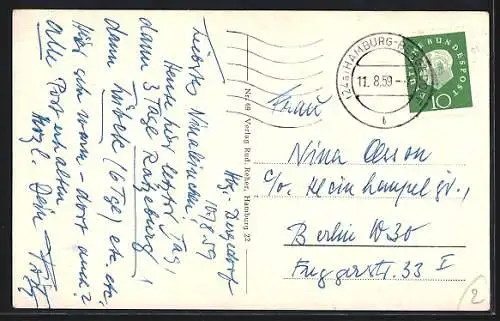 Hbg.-Bergedorf
10/8.59
Liebste Ninalein,
Heute hier letzter Tag,
dann 3 Tage Ratzeburg,
dann Lübeck (6 Tge) etc. etc.
Hier sehr warm – dort auch?
Alle Post erhalten
Herzl. Dein
Nr. 69 · Verlag Rud. Reher, Hamburg 22
(24a) HAMBURG-BERGEDORF
11.8.59
t
DEUTSCHE BUNDESPOST
10
Frau
Nina
c/o. Kleinhempel gr.,
Berlin W30
Fuggerstr. 33 I
2